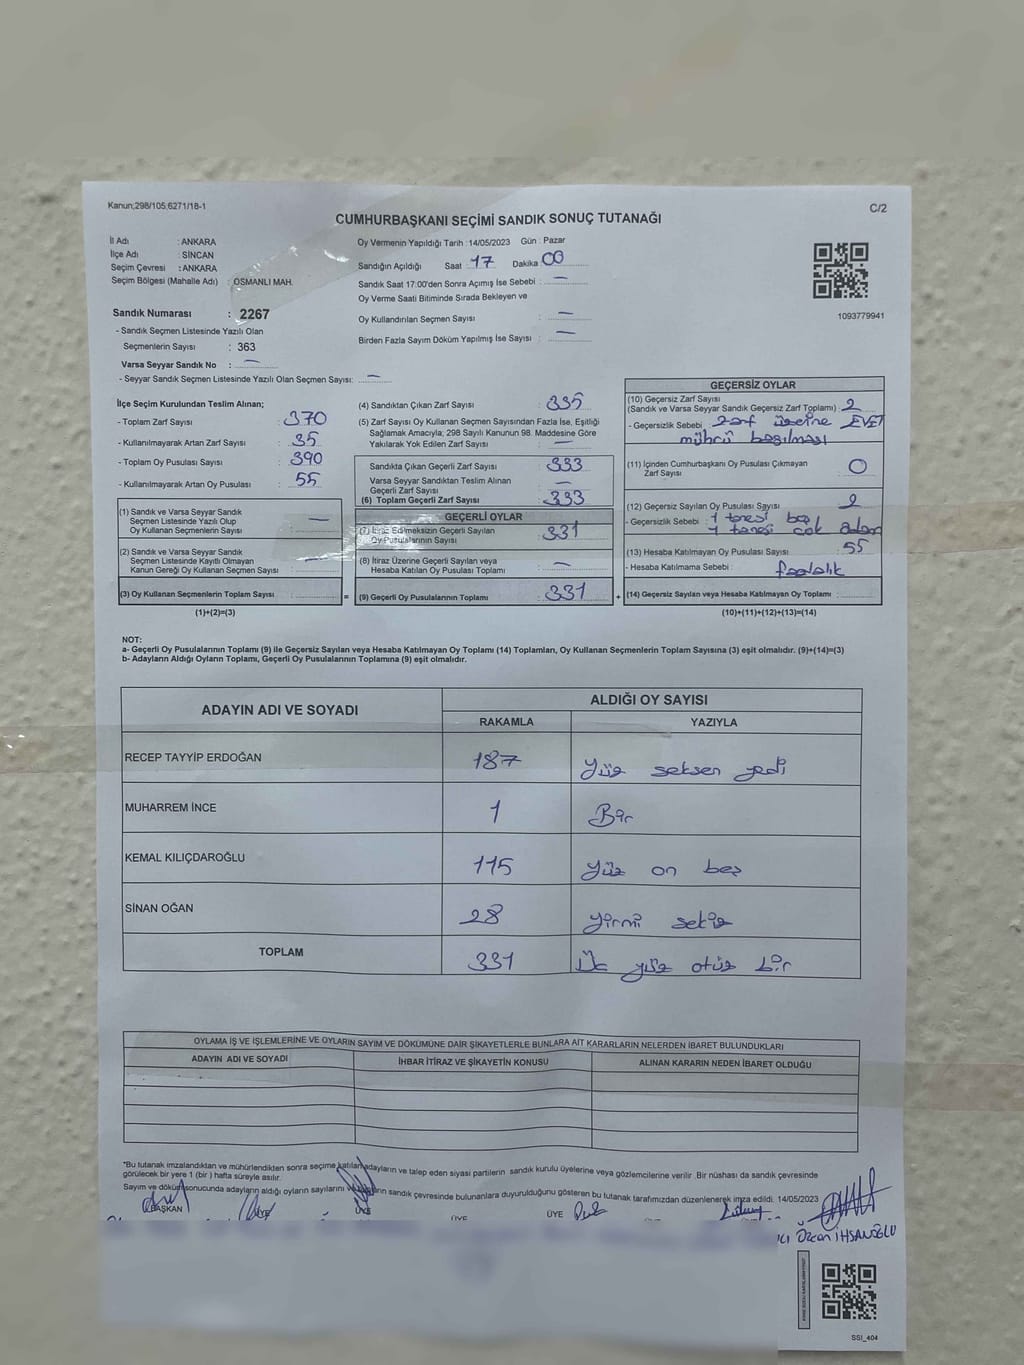 Kanun;298/105;6271/18-1
C/2
CUMHURBAŞKANI SEÇİMİ SANDIK SONUÇ TUTANAĞI
İl Adı : ANKARA
İlçe Adı : SİNCAN
Seçim Çevresi : ANKARA
Seçim Bölgesi (Mahalle Adı) : OSMANLI MAH.
Sandık Numarası : 2267
- Sandık Seçmen Listesinde Yazılı Olan
Seçmenlerin Sayısı : 363
Varsa Seyyar Sandık No : —
- Seyyar Sandık Seçmen Listesinde Yazılı Olan Seçmen Sayısı: —
Oy Vermenin Yapıldığı Tarih : 14/05/2023 Gün : Pazar
Sandığın Açıldığı Saat : 17 Dakika : 00
Sandık Saat 17:00'den Sonra Açımış İse Sebebi : —
Oy Verme Saati Bitiminde Sırada Bekleyen ve
Oy Kullandırılan Seçmen Sayısı : —
Birden Fazla Sayım Döküm Yapılmış İse Sayısı : —
1093779941
İlçe Seçim Kurulundan Teslim Alınan;
- Toplam Zarf Sayısı : 370
- Kullanılmayarak Artan Zarf Sayısı : 35
- Toplam Oy Pusulası Sayısı : 390
- Kullanılmayarak Artan Oy Pusulası : 55
(1) Sandık ve Varsa Seyyar Sandık
Seçmen Listesinde Yazılı Olup
Oy Kullanan Seçmenlerin Sayısı : —
(2) Sandık ve Varsa Seyyar Sandık
Seçmen Listesinde Kayıtlı Olmayan
Kanun Gereği Oy Kullanan Seçmen Sayısı : —
(3) Oy Kullanan Seçmenlerin Toplam Sayısı :
(1)+(2)=(3)
(4) Sandıktan Çıkan Zarf Sayısı : 335
(5) Zarf Sayısı Oy Kullanan Seçmen Sayısından Fazla İse, Eşitliği
Sağlamak Amacıyla; 298 Sayılı Kanunun 98. Maddesine Göre
Yakılarak Yok Edilen Zarf Sayısı : —
Sandıkta Çıkan Geçerli Zarf Sayısı : 333
Varsa Seyyar Sandıktan Teslim Alınan
Geçerli Zarf Sayısı : —
(6) Toplam Geçerli Zarf Sayısı : 333
GEÇERLİ OYLAR
(7) İtiraz Edilmeksizin Geçerli Sayılan
Oy Pusulalarının Sayısı : 331
(8) İtiraz Üzerine Geçerli Sayılan veya
Hesaba Katılan Oy Pusulası Toplamı : —
(9) Geçerli Oy Pusulalarının Toplamı : 331
GEÇERSİZ OYLAR
(10) Geçersiz Zarf Sayısı
(Sandık ve Varsa Seyyar Sandık Geçersiz Zarf Toplamı) : 2
- Geçersizlik Sebebi : zarf üzerine EVET
mührü basılması
(11) İçinden Cumhurbaşkanı Oy Pusulası Çıkmayan
Zarf Sayısı : 0
(12) Geçersiz Sayılan Oy Pusulası Sayısı : 2
- Geçersizlik Sebebi : 1 tanesi boş
1 tanesi çok adam
(13) Hesaba Katılmayan Oy Pusulası Sayısı : 55
- Hesaba Katılmama Sebebi : fazlalık
(14) Geçersiz Sayılan veya Hesaba Katılmayan Oy Toplamı :
(10)+(11)+(12)+(13)=(14)
NOT:
a- Geçerli Oy Pusulalarının Toplamı (9) ile Geçersiz Sayılan veya Hesaba Katılmayan Oy Toplamı (14) Toplamları, Oy Kullanan Seçmenlerin Toplam Sayısına (3) eşit olmalıdır. (9)+(14)=(3)
b- Adayların Aldığı Oyların Toplamı, Geçerli Oy Pusulalarının Toplamına (9) eşit olmalıdır.
ADAYIN ADI VE SOYADI
ALDIĞI OY SAYISI
RAKAMLA YAZIYLA
RECEP TAYYİP ERDOĞAN 187 Yüz seksen yedi
MUHARREM İNCE 1 Bir
KEMAL KILIÇDAROĞLU 115 Yüz on beş
SİNAN OĞAN 28 Yirmi sekiz
TOPLAM 331 Üç yüz otuz bir
OYLAMA İŞ VE İŞLEMLERİNE VE OYLARIN SAYIM VE DÖKÜMÜNE DAİR ŞİKAYETLERLE BUNLARA AİT KARARLARIN NELERDEN İBARET BULUNDUKLARI
ADAYIN ADI VE SOYADI İHBAR İTİRAZ VE ŞİKAYETİN KONUSU ALINAN KARARIN NEDEN İBARET OLDUĞU
*Bu tutanak imzalandıktan ve mühürlendikten sonra seçime katılan adayların ve talep eden siyasi partilerin sandık kurulu üyelerine veya gözlemcilerine verilir .Bir nüshası da sandık çevresinde
görülecek bir yere 1 (bir ) hafta süreyle asılır.
Sayım ve döküm sonucunda adayların aldığı oyların sayılarını ve sandık çevresinde bulunanlara duyurulduğunu gösteren bu tutanak tarafımızdan düzenlenerek imza edildi. 14/05/2023
BAŞKAN ÜYE ÜYE ÜYE ÜYE
Özcan İHSANOĞLU
SSI_404